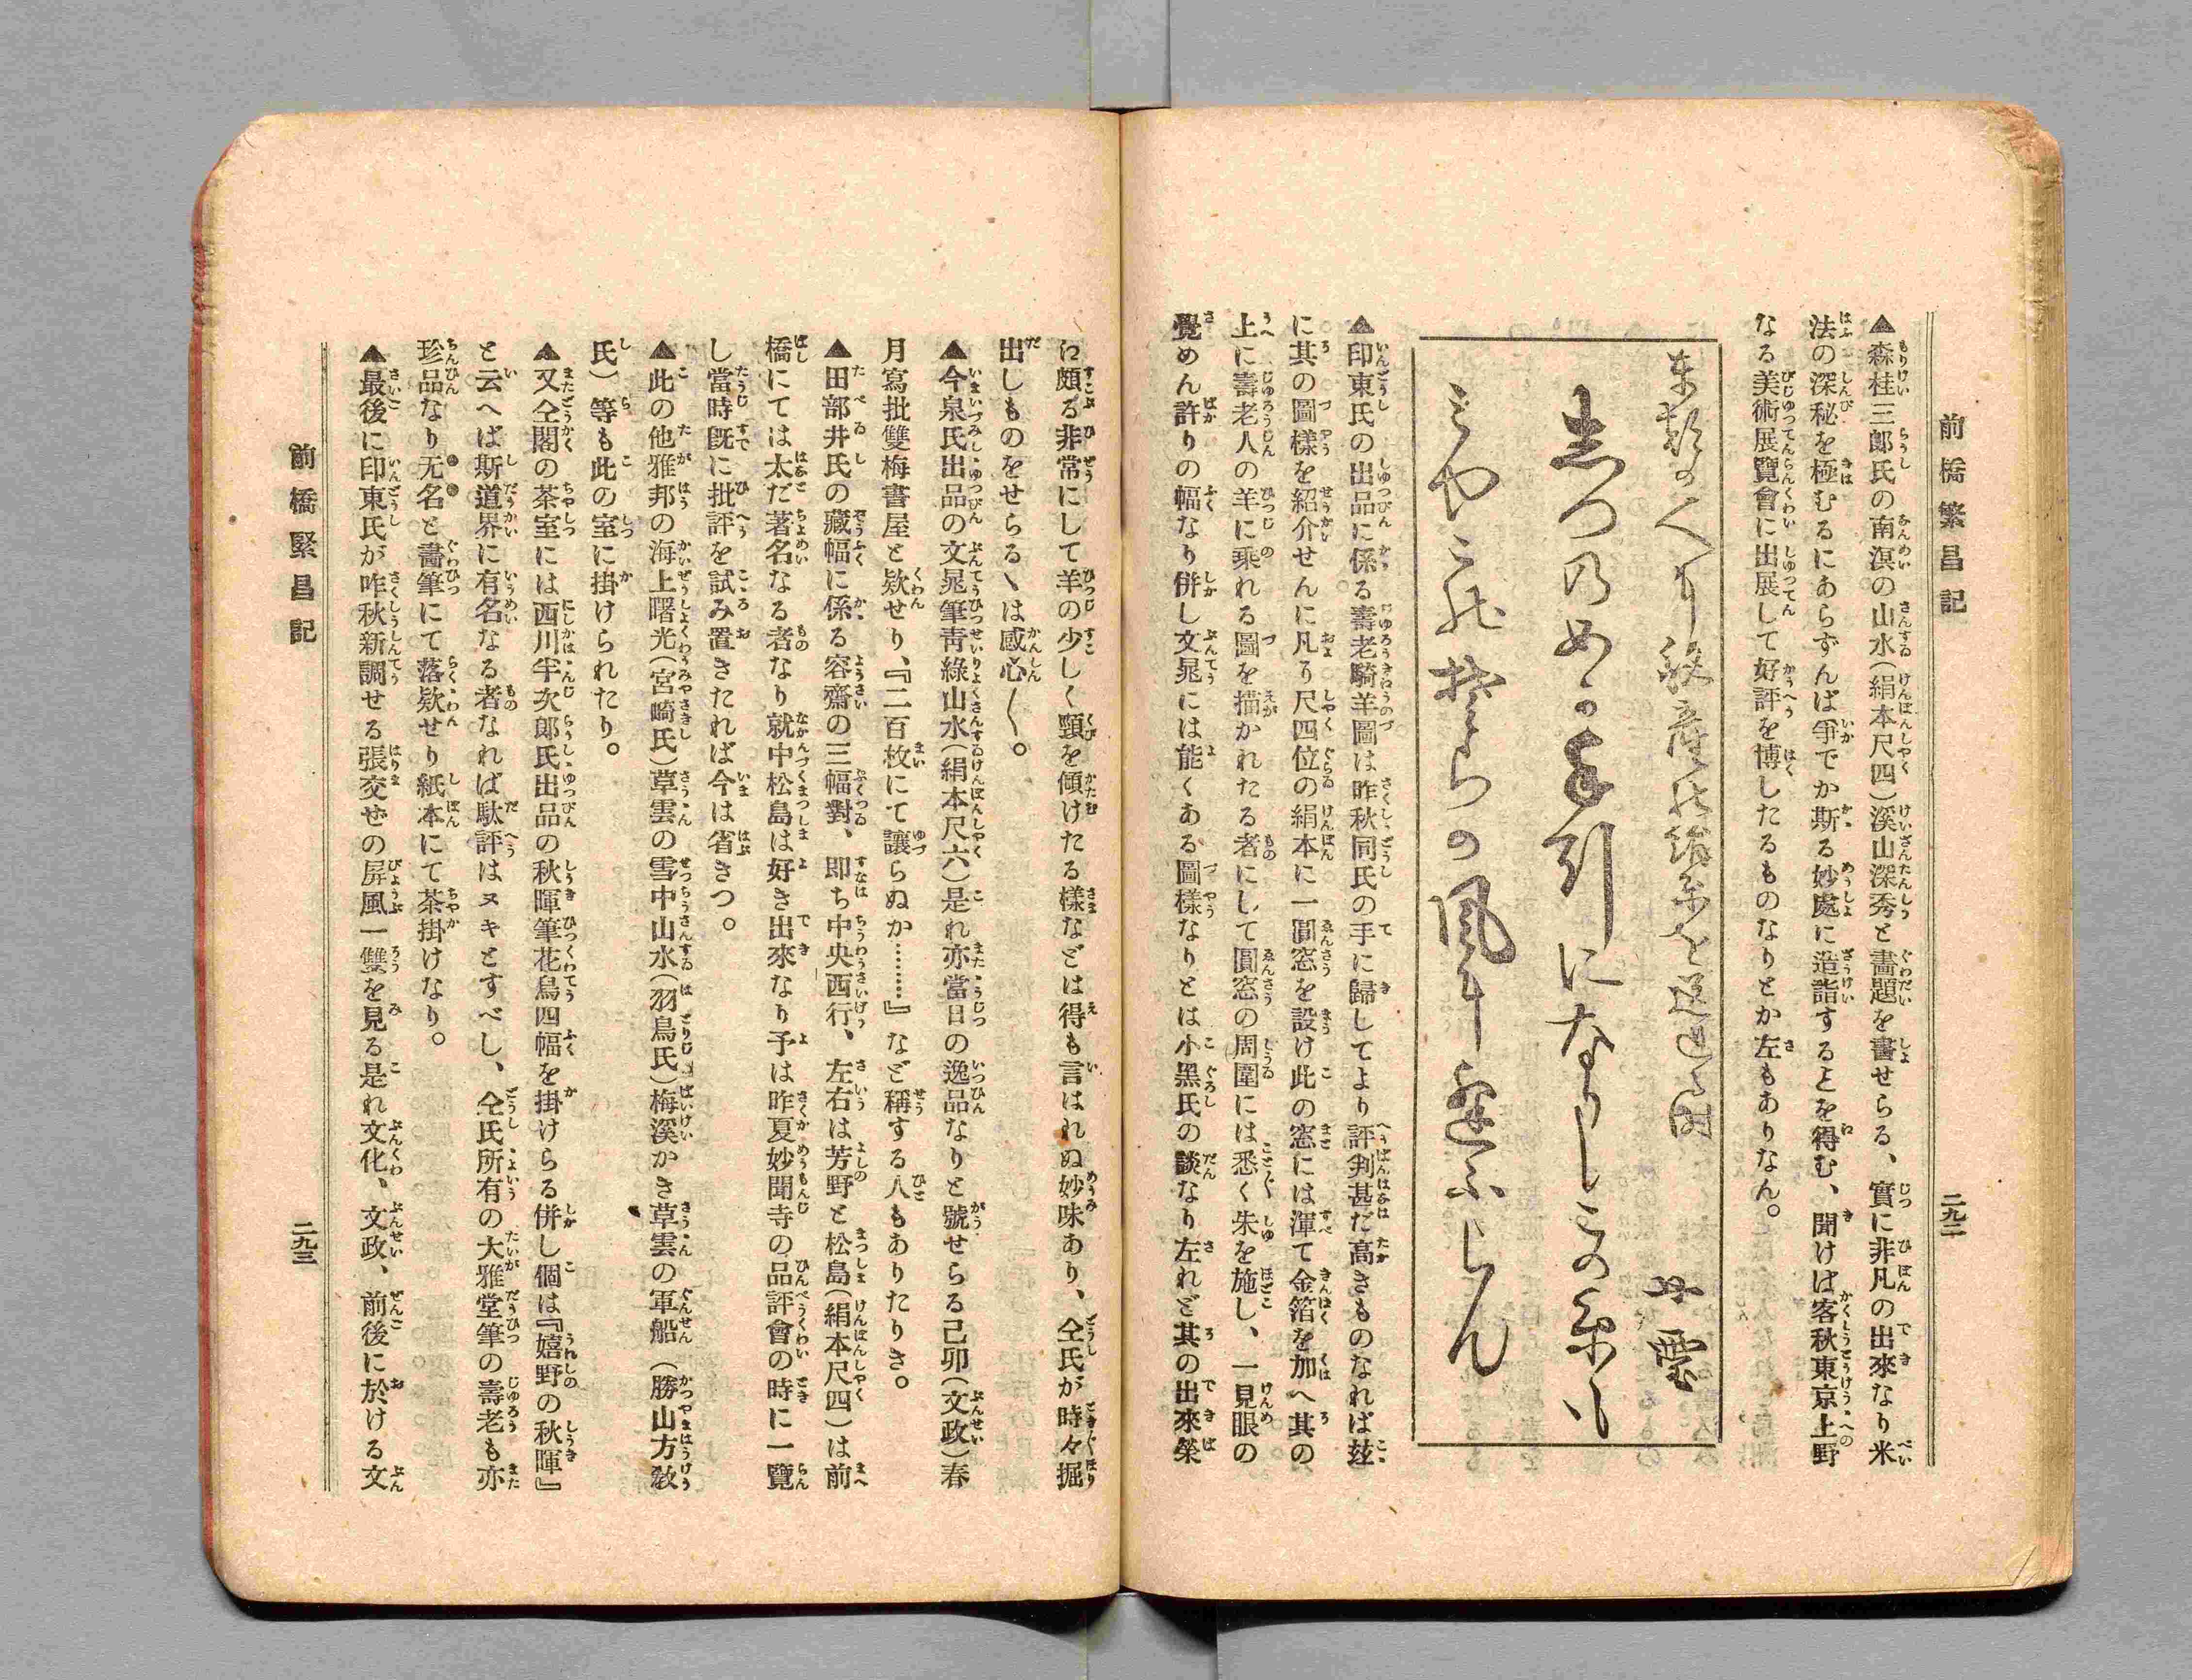 前橋繁昌記
二九二
▲森桂三郎氏の南溟の山水(絹本尺四)溪山深秀と畵題を書せらる、實に非凡の出來なり米
法の深秘を極むるにあらずんば爭でか斯る妙處に造詣するとを得む、聞けば客秋東京上野
なる美術展覽會に出展して好評を博したるものなりとか左もありなん。
志つのめか手引になりしこの糸も
みやこ
の風に
らん
▲印東氏の出品に係る壽老騎羊圖は昨秋同氏の手に歸してより評判甚だ高きものなれば玆
に其の圖樣を紹介せんに凡り尺四位の絹本に一圓窓を設け此の窓には渾て金箔を加へ其の
上に壽老人の羊に乘れる圖を描かれたる者にして圓窓の周圍には悉く朱を施し、一見眼の
覺めん許りの幅なり併し文晁には能くある圖樣なりとは小黑氏の談なり左れど其の出來榮
は頗る非常にして羊の少しく頸を傾けたる樣などは得も言はれぬ妙味あり、仝氏が時々掘
出しものをせらるゝは感心〳〵。
▲今泉氏出品の文晁筆靑綠山水(絹本尺六)是れ亦當日の逸品なりと號せらる己卯(文政)春
月寫批雙梅書屋と欵せり、『二百枚にて讓らぬか………』など稱する人もありたりき。
▲田部井氏の藏幅に係る容齋の三幅對、即ち中央西行、左右は芳野と松島(絹本尺四)は前
橋にては太だ著名なる者なり就中松島は好き出來なり予は昨夏妙聞寺の品評會の時に一覽
し當時旣に批評を試み置きたれば今は省きつ。
▲此の他雅邦の海上曙光(宮崎氏)草雲の雪中山水(羽鳥氏)梅溪かき草雲の軍船(勝山方敎
氏)等も此の室に掛けられたり。
▲又仝閣の茶室には西川半次郎氏出品の秋暉筆花鳥四幅を掛けらる併し個は『嬉野の秋暉』
と云へば斯道界に有名なる者なれば駄評はヌキとすべし、仝氏所有の大雅堂筆の壽老も亦
珍品なり无名と畵筆にて落欵せり紙本にて茶掛けなり。
▲最後に印東氏が昨秋新調せる張交ぜの屏風一雙を見る是れ文化、文政、前後に於ける文
前橋緊昌記
二九三